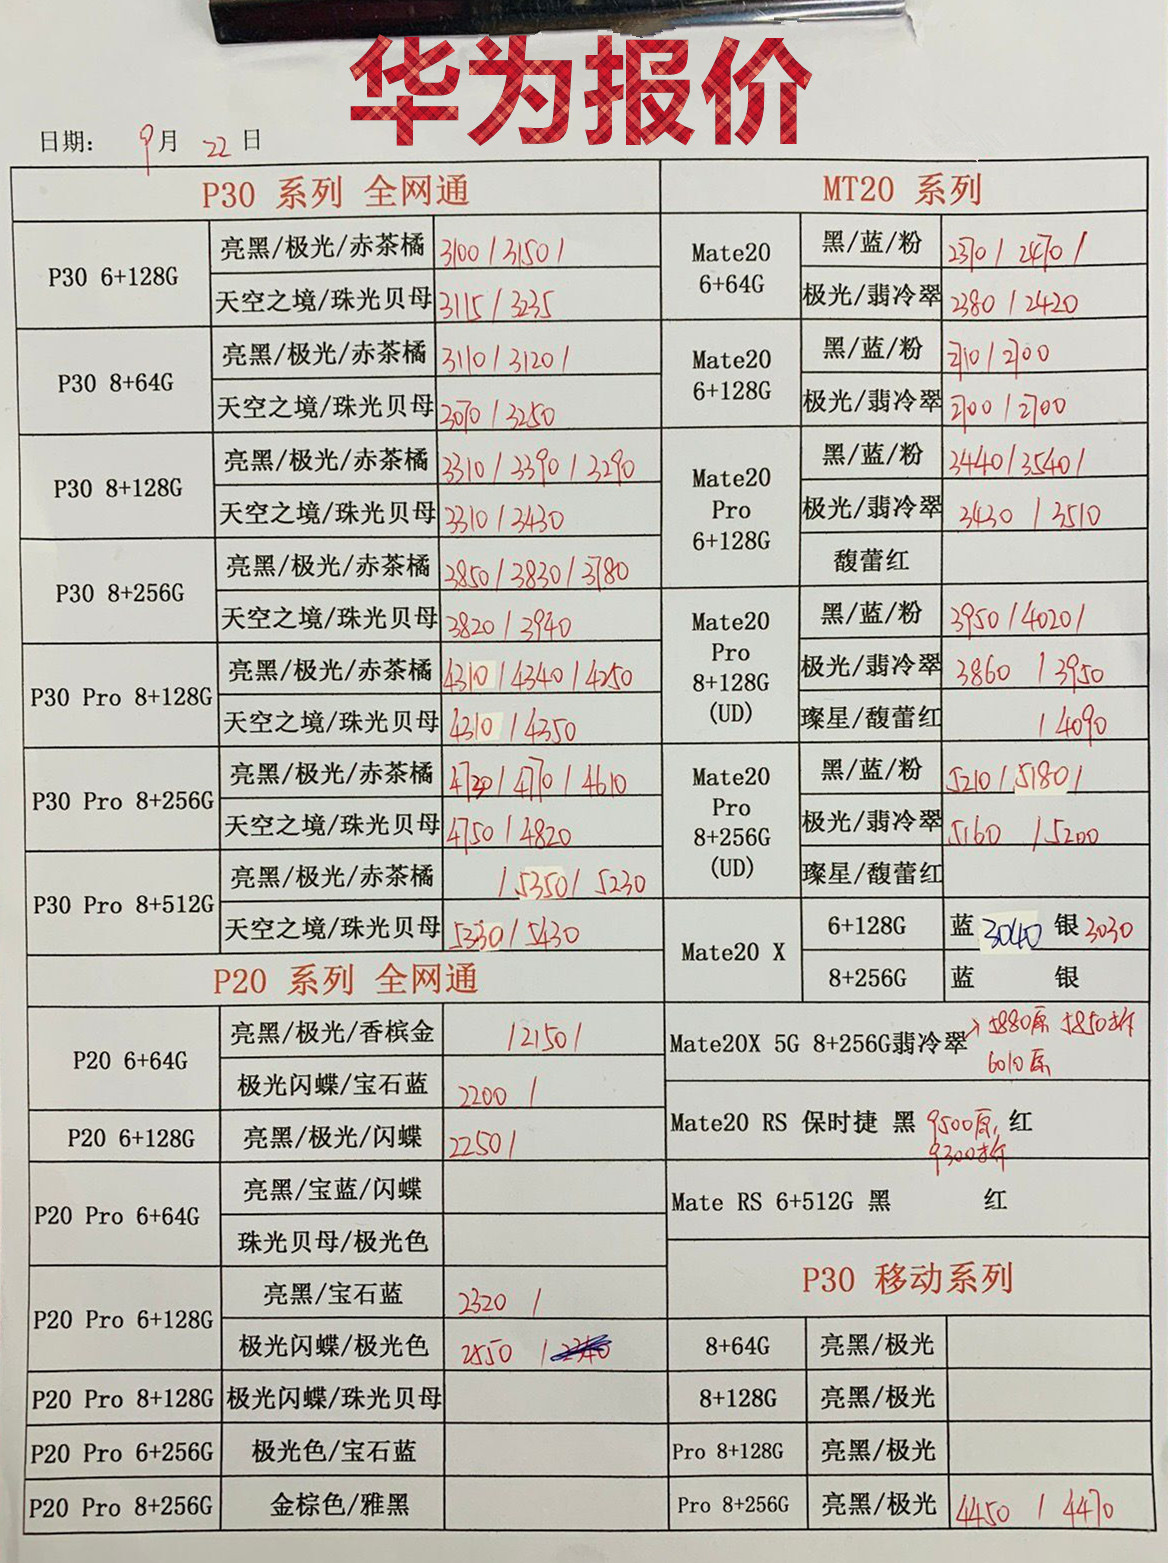 华为报价
日期: 9月 22日
P30 系列 全网通
P30 6+128G
亮黑/极光/赤茶橘 3100 / 3150 /
天空之境/珠光贝母 3115 / 3235
P30 8+64G
亮黑/极光/赤茶橘 3110 / 3120 /
天空之境/珠光贝母 3070 / 3250
P30 8+128G
亮黑/极光/赤茶橘 3310 / 3390 / 3290
天空之境/珠光贝母 3310 / 3430
P30 8+256G
亮黑/极光/赤茶橘 3850 / 3830 / 3780
天空之境/珠光贝母 3820 / 3940
P30 Pro 8+128G
亮黑/极光/赤茶橘 4310 / 4340 / 4250
天空之境/珠光贝母 4310 / 4350
P30 Pro 8+256G
亮黑/极光/赤茶橘 4720 / 4770 / 4610
天空之境/珠光贝母 4750 / 4820
P30 Pro 8+512G
亮黑/极光/赤茶橘 / 5350 / 5230
天空之境/珠光贝母 5330 / 5430
P20 系列 全网通
P20 6+64G
亮黑/极光/香槟金 / 2150 /
极光闪蝶/宝石蓝 2200 /
P20 6+128G
亮黑/极光/闪蝶 2250 /
P20 Pro 6+64G
亮黑/宝蓝/闪蝶
珠光贝母/极光色
P20 Pro 6+128G
亮黑/宝石蓝 2320 /
极光闪蝶/极光色 2550 /
P20 Pro 8+128G
极光闪蝶/珠光贝母
P20 Pro 6+256G
极光色/宝石蓝
P20 Pro 8+256G
金棕色/雅黑
MT20 系列
Mate20
6+64G
黑/蓝/粉 2370 / 2470 /
极光/翡冷翠 2380 / 2420
Mate20
6+128G
黑/蓝/粉 2710 / 2700
极光/翡冷翠 2700 / 2700
Mate20
Pro
6+128G
黑/蓝/粉 3440 / 3540 /
极光/翡冷翠 3430 / 3510
馥蕾红
Mate20
Pro
8+128G
(UD)
黑/蓝/粉 3950 / 4020 /
极光/翡冷翠 3860 / 3950
璨星/馥蕾红 / 4090
Mate20
Pro
8+256G
(UD)
黑/蓝/粉 5210 / 5180 /
极光/翡冷翠 5160 / 5200
璨星/馥蕾红
Mate20 X
6+128G 蓝 3040 银 3030
8+256G 蓝 银
Mate20X 5G 8+256G翡冷翠 5880原 5850拆
6010原
Mate20 RS 保时捷 黑 9500原, 红
9300拆
Mate RS 6+512G 黑 红
P30 移动系列
8+64G 亮黑/极光
8+128G 亮黑/极光
Pro 8+128G 亮黑/极光
Pro 8+256G 亮黑/极光 4450 / 4470